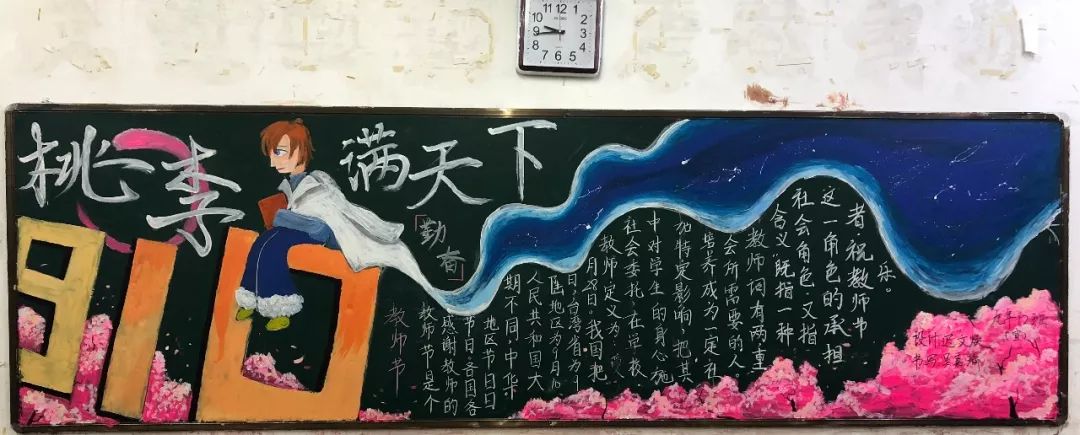 11 12 1
10 2
9 3
8 4
7 6 5
桃李满天下
910
「勤奋」
教师节
教师节是个
感谢教师的
节日,各国各
地区节日日
期不同,中华
人民共和国大
陆地区为9月10
日,台湾省为9
月28日。我国把
教师定义为:
社会委托,在学校
中对学生的身心施
加特定影响,把其
培养成为一定社
会所需要的人
教师一词有两重
含义,既指一种
社会角色,又指
这一角色的承担
者 祝教师节
乐。
设计
书写